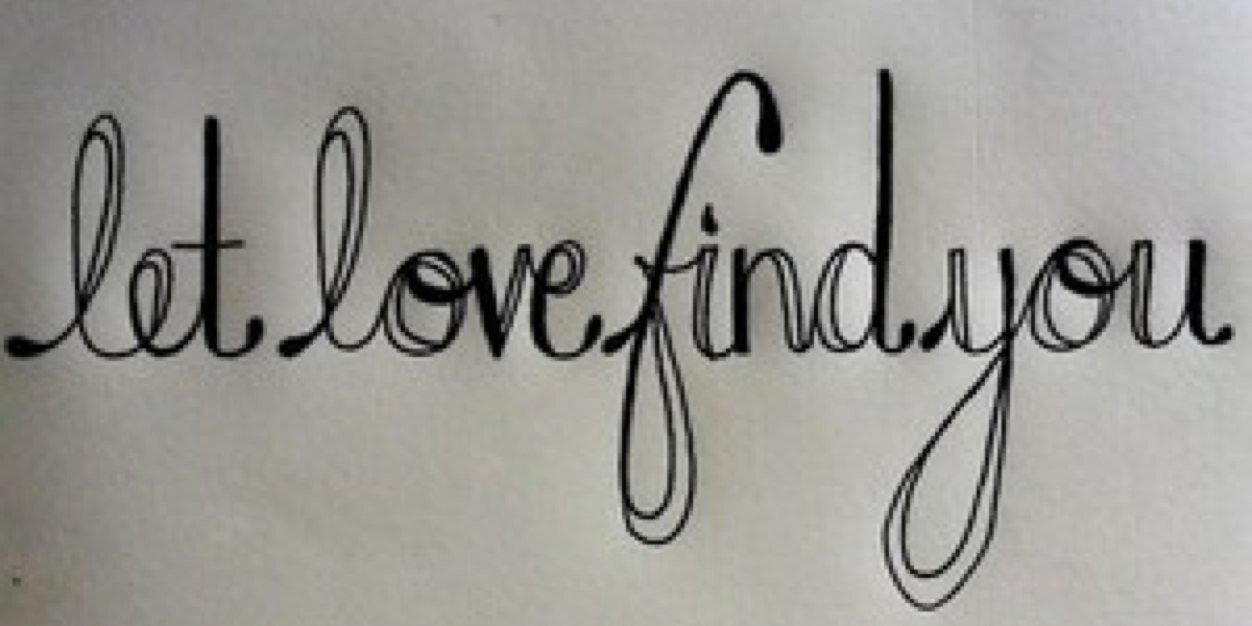 let love find you